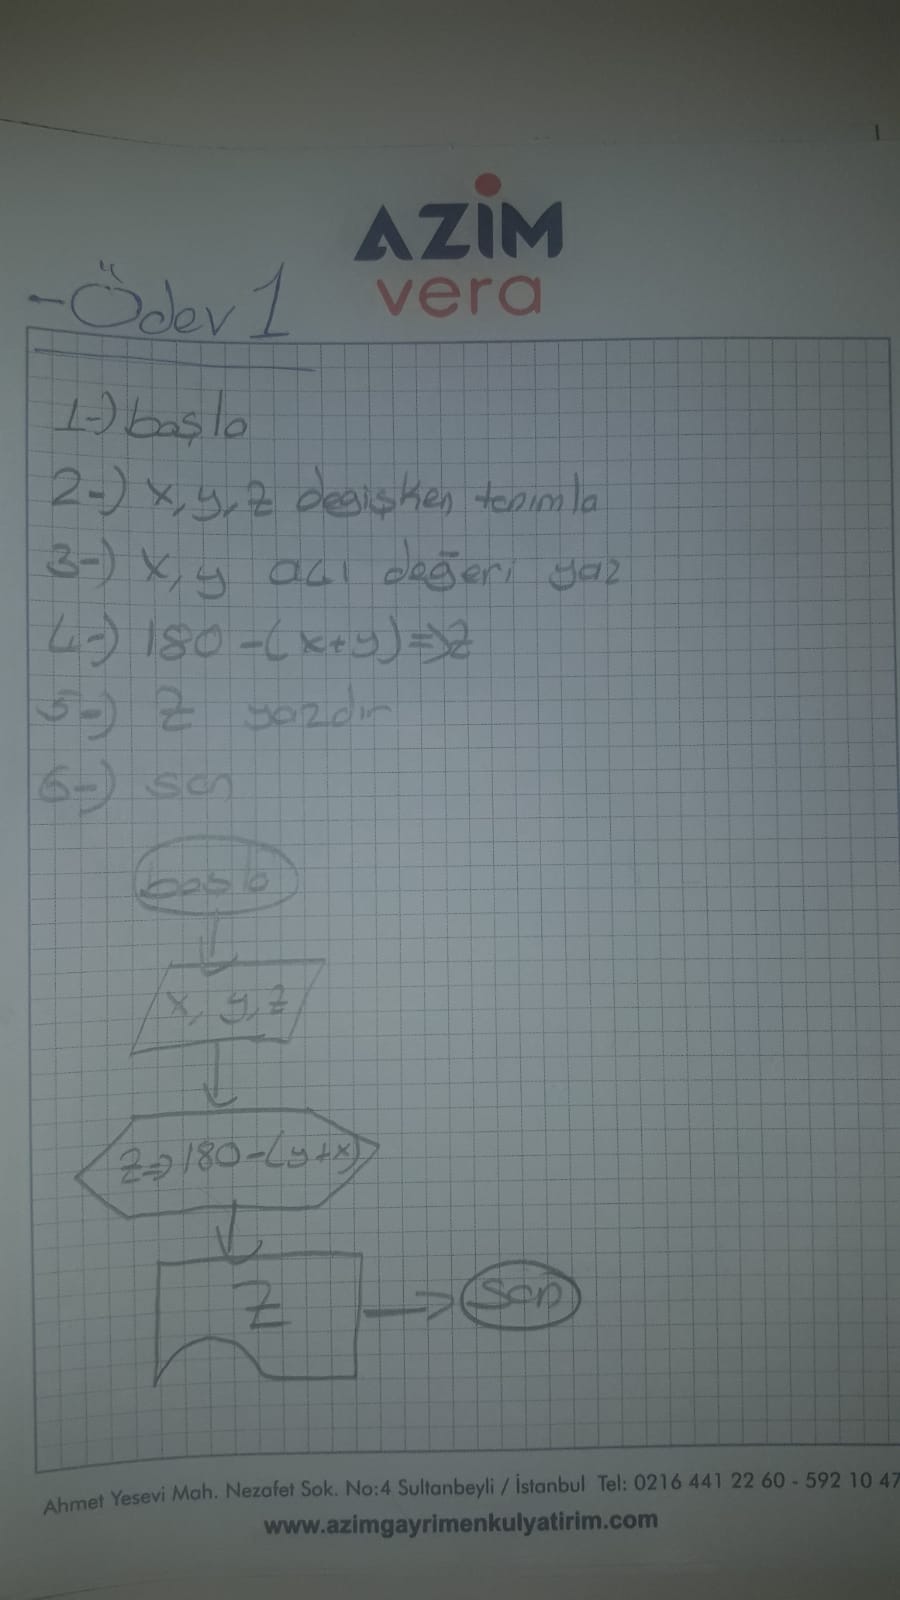 AZİM
vera
-Ödev 1
1-) başla
2-) x, y, z degişken tanımla
3-) x, y açı değeri yaz
4-) 180-(x+y)=>z
5-) z yazdır
6-) son
başla
x, y, z
z=>180-(y+x)
z
son
Ahmet Yesevi Mah. Nezafet Sok. No:4 Sultanbeyli / İstanbul Tel: 0216 441 22 60 - 592 10 47
www.azimgayrimenkulyatirim.com